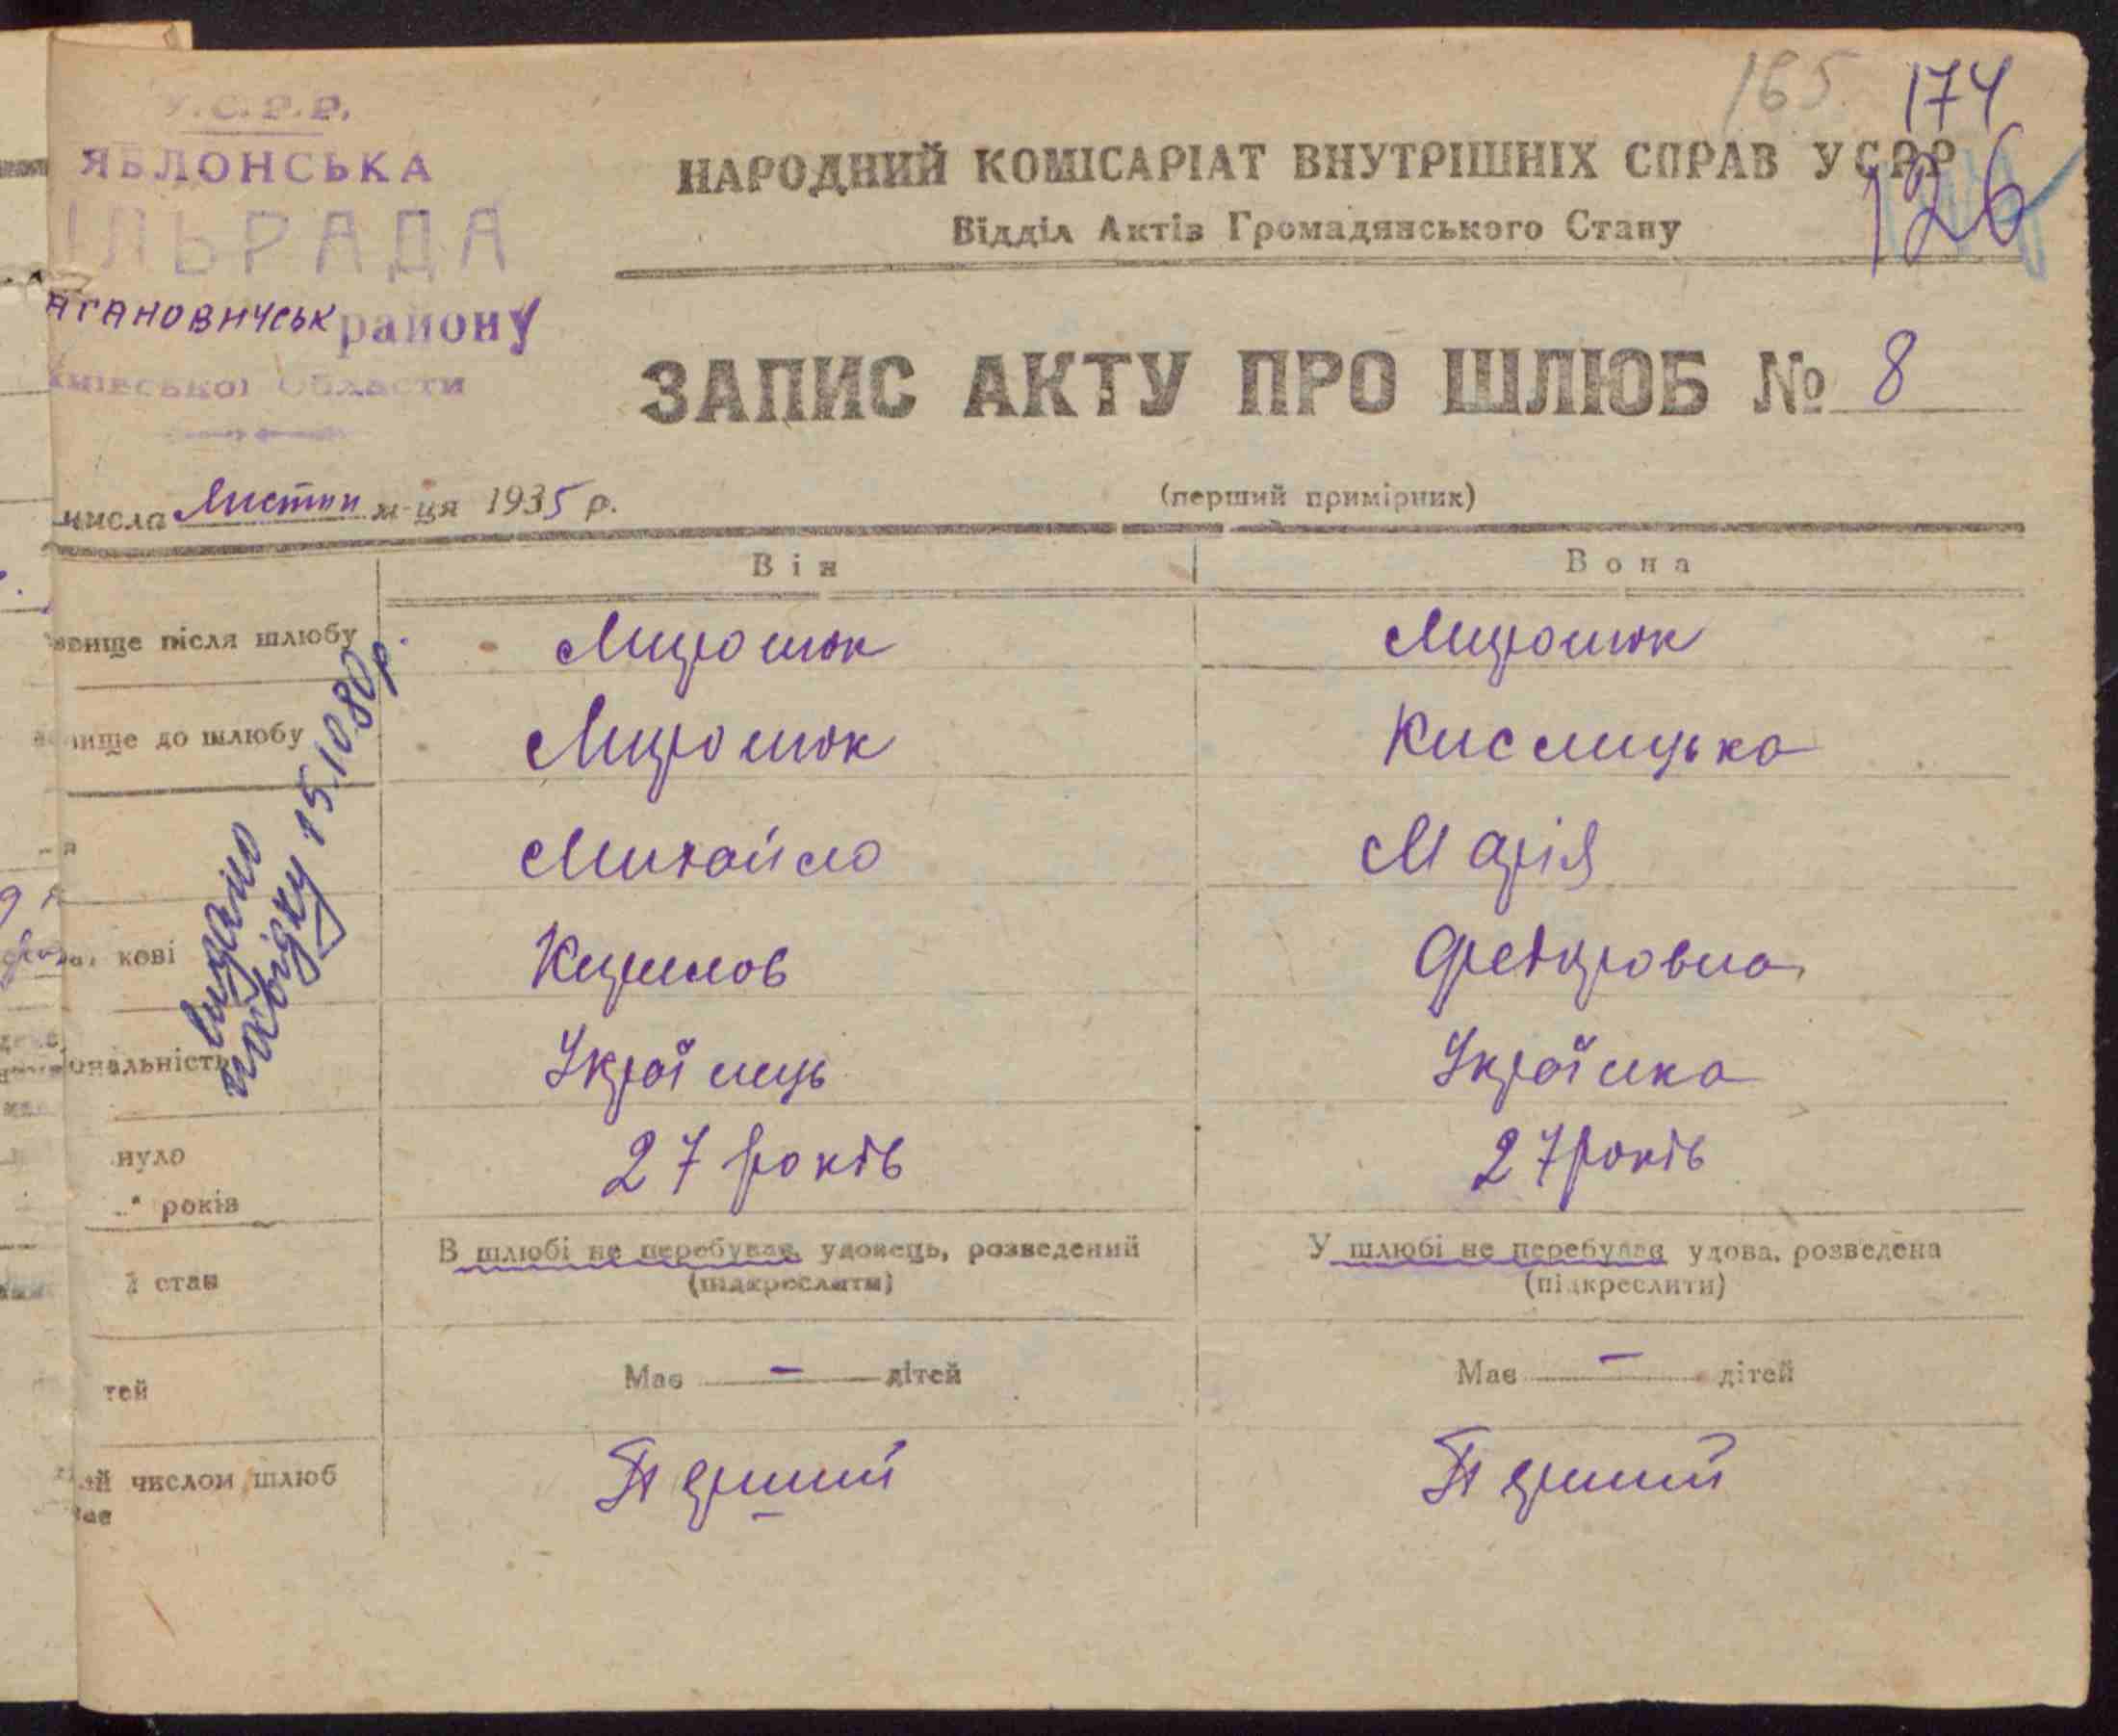 165 174
126
У.С.Р.Р.
ЯБЛОНСЬКА
ІЛЬРАДА
АГАНОВИЧСЬК району
иївської Области
НАРОДНИЙ КОМІСАРІАТ ВНУТРІШНІХ СПРАВ УСРР
Відділ Актів Громадянського Стану
ЗАПИС АКТУ ПРО ШЛЮБ № 8
числа Листоп м-ця 1935 р.
(перший примірник)
Він Вона
звище після шлюбу Мирошок Мирошок
вище до шлюбу Мирошок Кислицька
Михайло Марія
кові Кирилов Федоровна
ональність Українець Українка
нуло
років 27 років 27 років
й стан В шлюбі не перебував, удовець, розведений У шлюбі не перебувала удова, розведена
(підкреслити) (підкреслити)
тей Має — дітей Має — дітей
ий числом шлюб Перший Перший
ває
видано
довідку 15.10.80р.